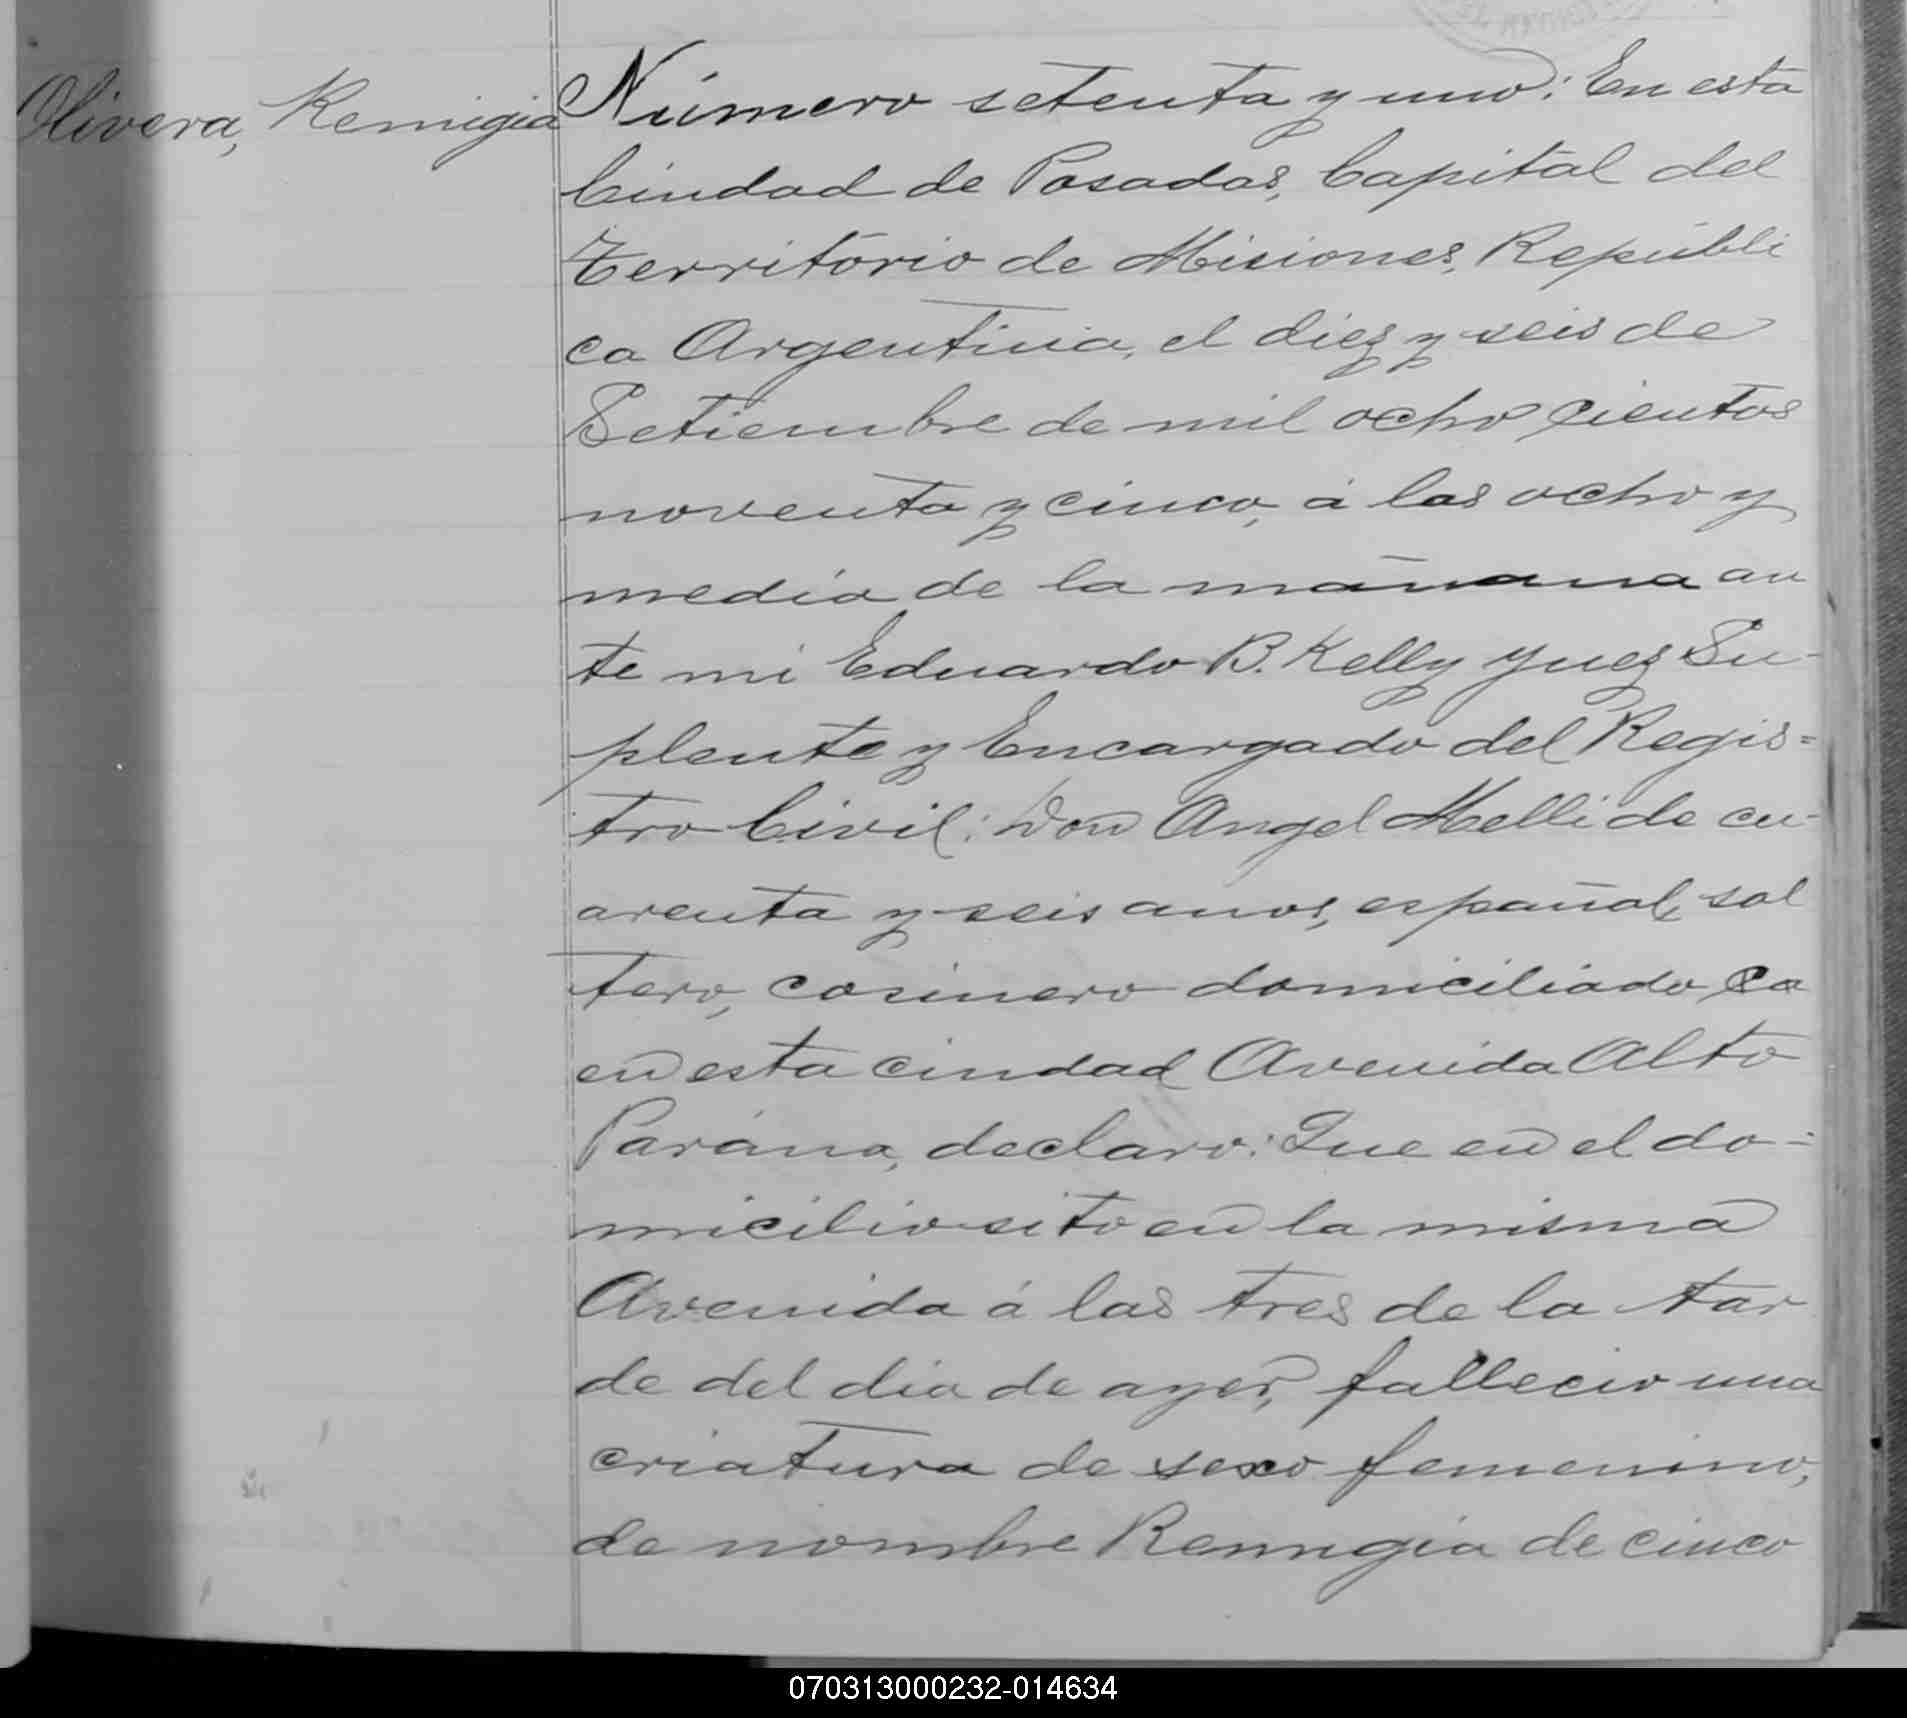 Olivera, Remigia
Número setenta y uno: En esta
Ciudad de Posadas, Capital del
Território de Misiones, Repúbli
ca Argentina, el diez y seis de
Setiembre de mil ocho cientos
noventa y cinco, á las ocho y
media de la mañana an
te mi Eduardo B. Kelly Juez Su-
plente y Encargado del Regis=
tro Civil: Don Angel Melli de cu-
arenta y seis anos, español, sol
tero, cosinero domiciliado
en esta ciudad Avenida Alto
Parána, declaro: Que en el do=
micilio sito en la misma
Avenida á las tres de la tar
de del dia de ayer, fallecio una
criatura de sexo femenino,
de nombre Remigia de cinco
070313000232-014634